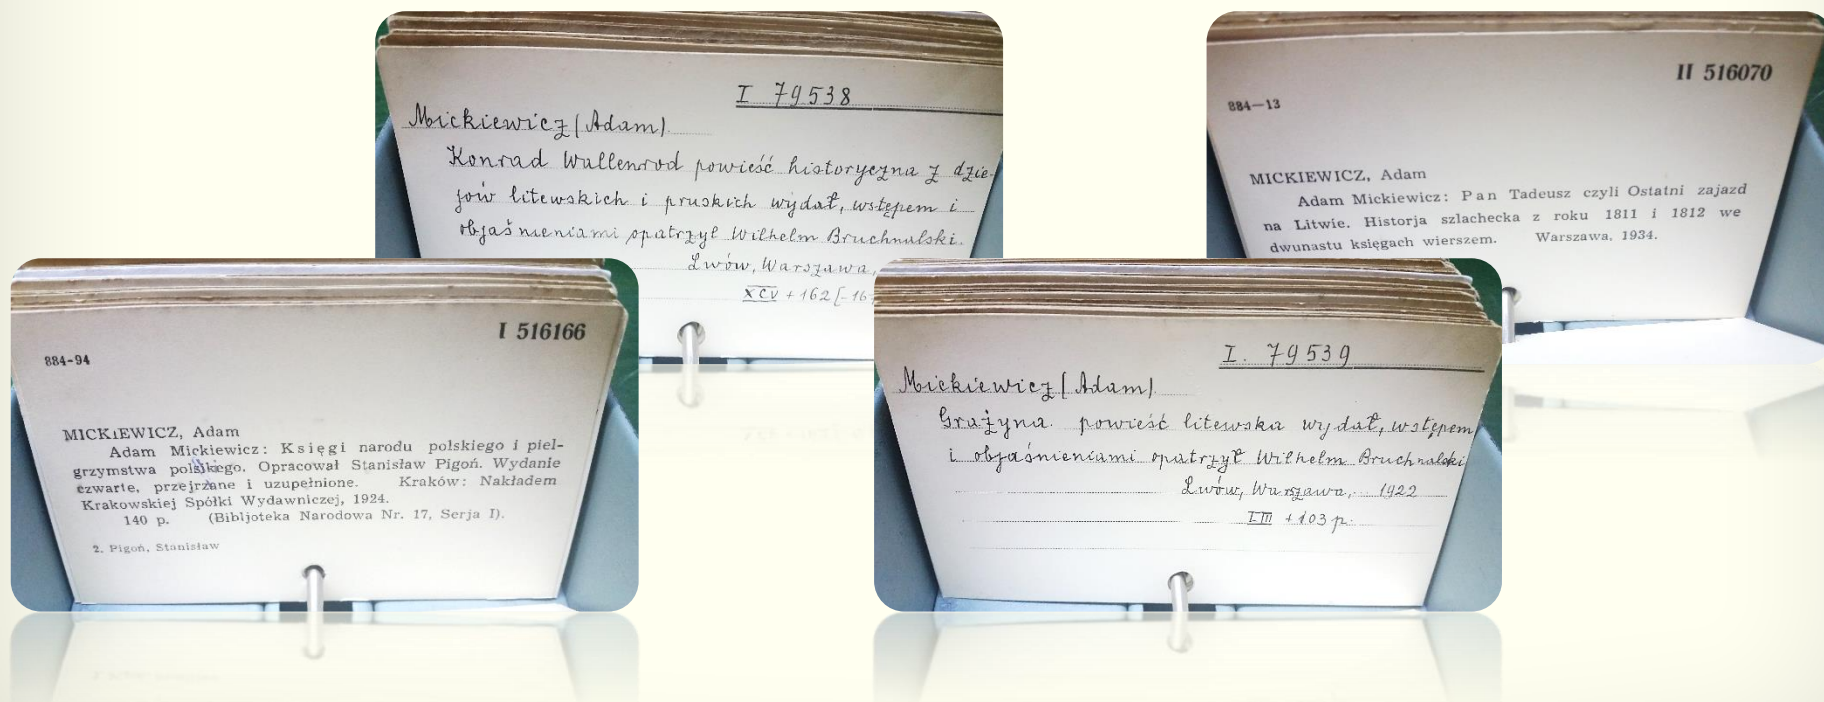 I 79538
Mickiewicz (Adam).
Konrad Wallenrod powieść historyczna z dzie-
jów litewskich i pruskich wydał, wstępem i
objaśnieniami opatrzył Wilhelm Bruchnalski.
Lwów, Warszawa,
XCV + 162 [-16
II 516070
884—13
MICKIEWICZ, Adam
Adam Mickiewicz: Pan Tadeusz czyli Ostatni zajazd
na Litwie. Historja szlachecka z roku 1811 i 1812 we
dwunastu księgach wierszem. Warszawa, 1934.
I 516166
884-94
MICKIEWICZ, Adam
Adam Mickiewicz: Księgi narodu polskiego i piel-
grzymstwa polskiego. Opracował Stanisław Pigoń. Wydanie
czwarte, przejrzane i uzupełnione. Kraków: Nakładem
Krakowskiej Spółki Wydawniczej, 1924.
140 p. (Bibljoteka Narodowa Nr. 17, Serja I).
2. Pigoń, Stanisław
I. 79539
Mickiewicz (Adam).
Grażyna. powieść litewska wydał, wstępem
i objaśnieniami opatrzył Wilhelm Bruchnalski
Lwów, Warszawa, 1922
LIII + 103 p.